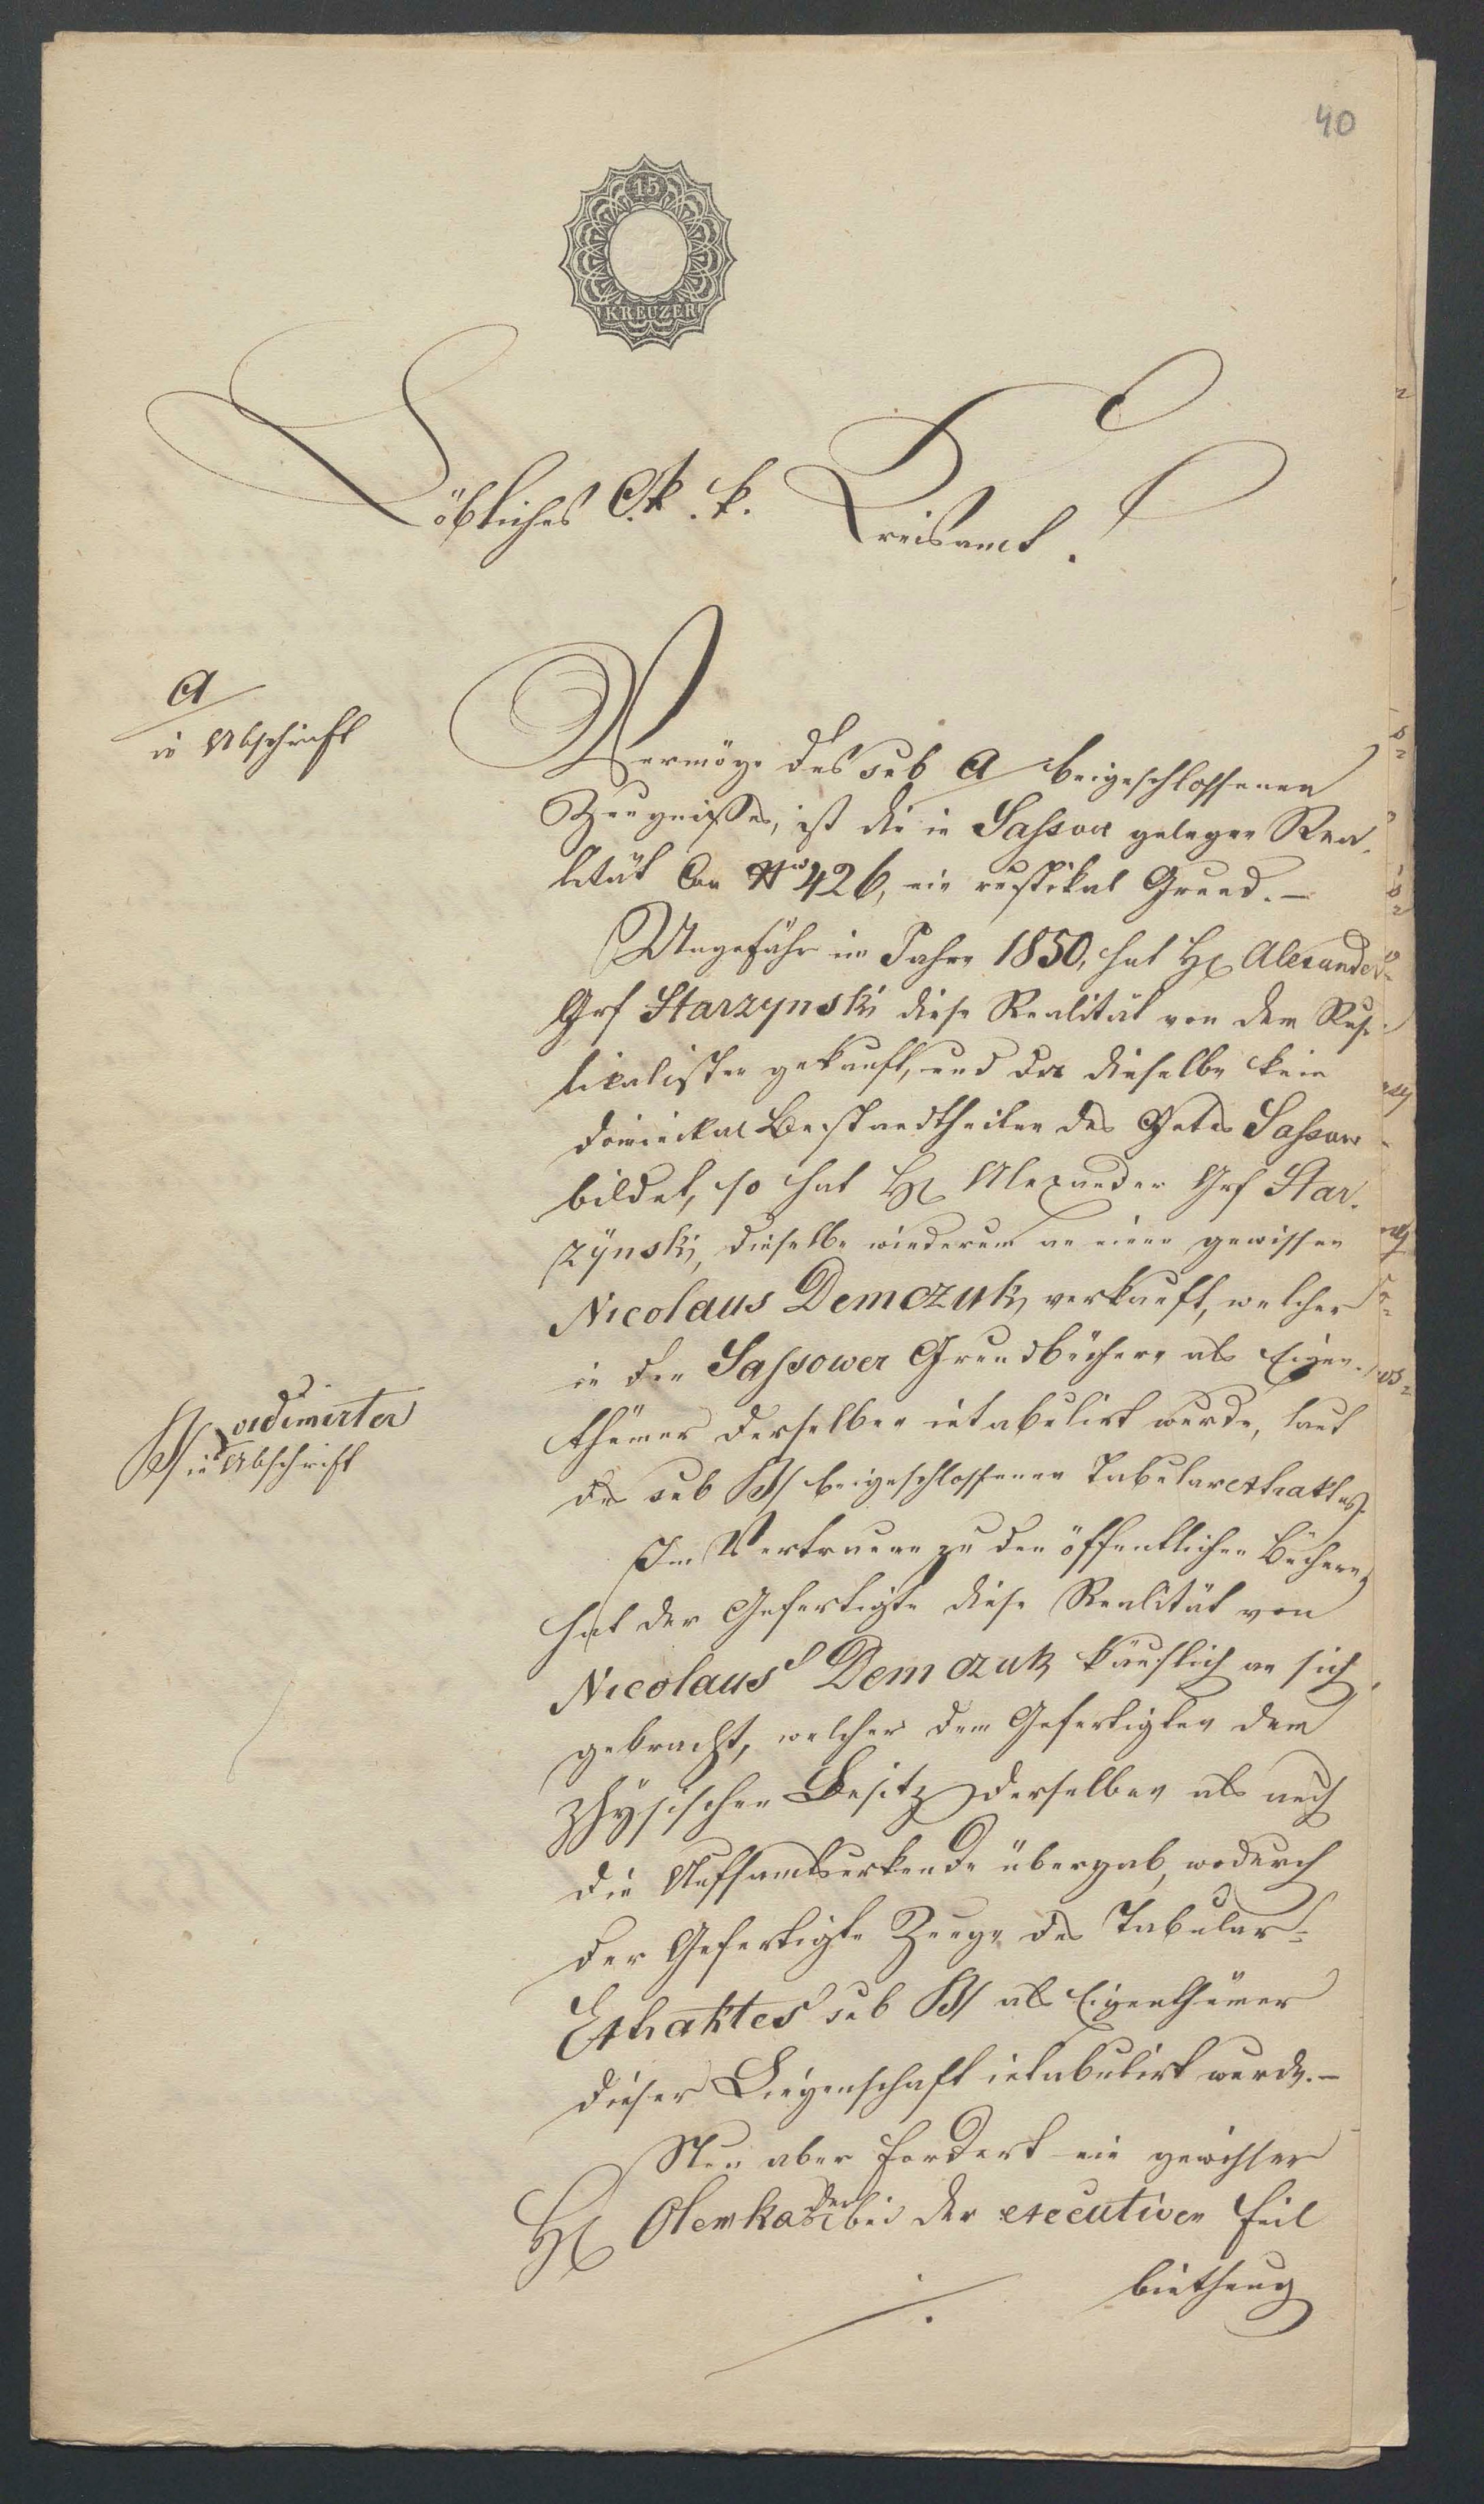 40
15
KREUZER
Löbliches k. k. Kreisamt.
A
in Abschrift
Vermöge des sub A beigeschlossenen
Zeugnißes, ist die in Sassow gelegen Rea-
lität Con No 426, ein rustikal Grund. –
Ungefähr im Jahre 1850, hat H. Alexander
Grf Starzynski diese Realität von dem Rus-
ticalisten gekauft, und da dieselbe kein
dominikal Bestandtheilen des Gutes Sassow
bildet, so hat H. Alexander Grf Star-
zÿnski, dieselbe wiederum an einen gewissen
Nicolaus Demczuk verkauft, welcher
in den Sassower Grundbüchern als Eigen-
thümer derselben intabulirt wurde, laut
B/ in vidimirter
Abschrift
des sub B/ beigeschlossenen Tabularextraktes.
Im Vertrauen zu den öffentlichen Büchern,
hat der Gefertigte diese Realität von
Nicolaus Demczuk käuflich an sich
gebracht, welcher dem Gefertigten den
phÿsischen Besitz derselben als auch
die Aufsandsurkunde übergab, wodurch
der Gefertigte Zeuge des Tabular-
Extraktes sub B/ als Eigenthümer
dieser Liegenschaft intabulirt wurde. –
Nun aber fordert ein gewisser
H. der bei der executiven Feil
biethung